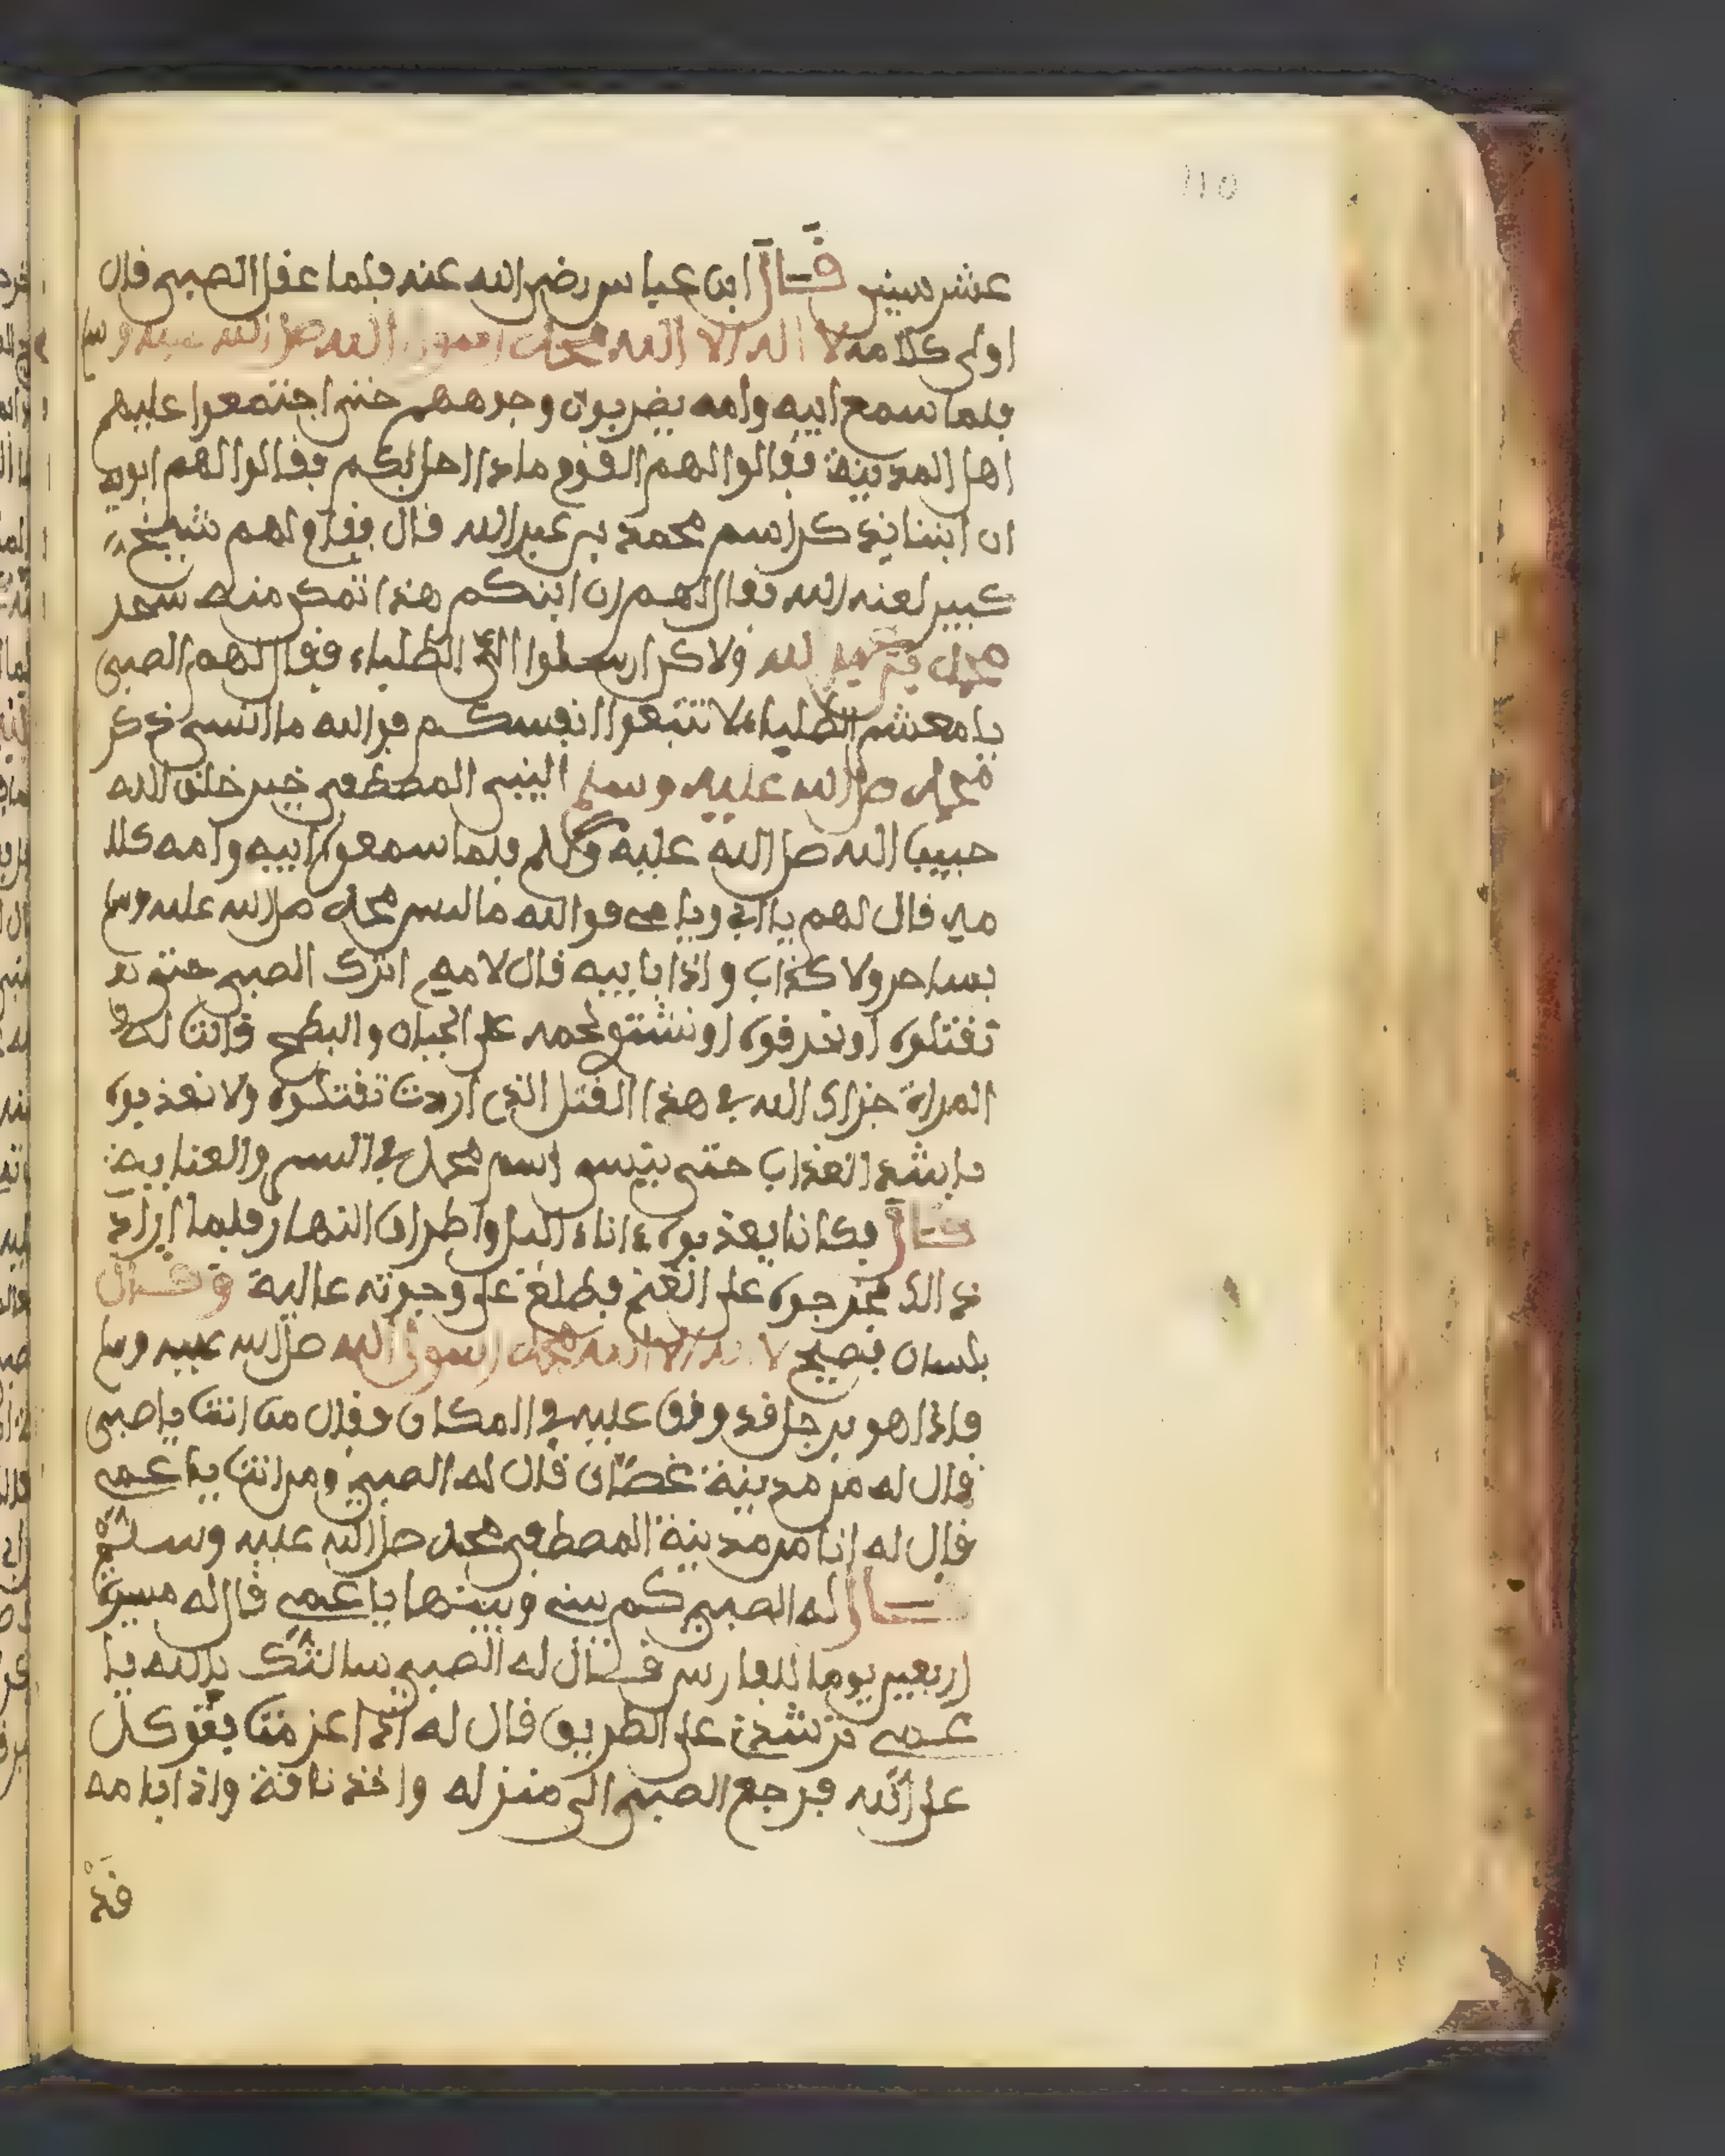 110
عشر سنين قال ابن عباس رضي الله عنه فلما عقل الصبي قال
اول كلامه لا اله الا الله محمد رسول الله صل الله عليه وسلم
فلما سمع ابيه وامه يضربون وجوههم حتى اجتمعوا عليهم
اهل المدينة فقالوا لهم القوم ماذا احل بكم فقالوا لهم ابويه
ان ابننا يذكر اسم محمد بن عبد الله قال فقام لهم شيخ
كبير لعنه الله فقال لهم ان ابنكم هذا تمكن منه سحر
محمد بن عبد الله ولاكن ارسلوا الى الطلباء فقال لهم الصبي
يا معشر الطلباء لا تتبعوا انفسكم فوالله ما انسى ذكر
محمد صل الله عليه وسلم النبي المصطفى خير خلق الله
حبيب الله صل الله عليه وسلم فلما سمعوا ابيه وامه كلا
مه قال لهم يا ابي ويا مي فوالله ما ليس محمد صل الله عليه وسلم
بساحر ولا كذاب واذا بابيه قال لامه اترك الصبي حتى
تقتلوه او نحرقوه او نشتتو لحمه على الجبال والبطح قالت له
المراة جزاك الله في هذا القتل الذي اردت تقتلوه ولا نعذبوه
باشد العذاب حتى ينسى اسم محمد في السر والعنا
قال فكانا يعذبوه ءاناء الليل واطراف النهار فلما اراد
ذالك نجد جوه على الغنم فطلع على وجوته عالية وقال
بلسان فصيح لا اله الا الله محمد رسول الله صل الله عليه وسلم
فاذا هو برجل قد وقف عليه في المكان وقال من انت يا صبي
قال له من مدينة غصان قال له الصبي ومن انت يا عمي
قال له انا من مدينة المصطفى محمد صل الله عليه وسلم
قال له الصبي كم بيني وبينها يا عمي قال له مسيرة
اربعين يوما للفارس قال له الصبي سالتك بالله يا
عمي ترشدني على الطريق قال له اذا عزمت فتوكل
على الله فرجع الصبي الى منزله واخذ ناقة واذا بامه
قد